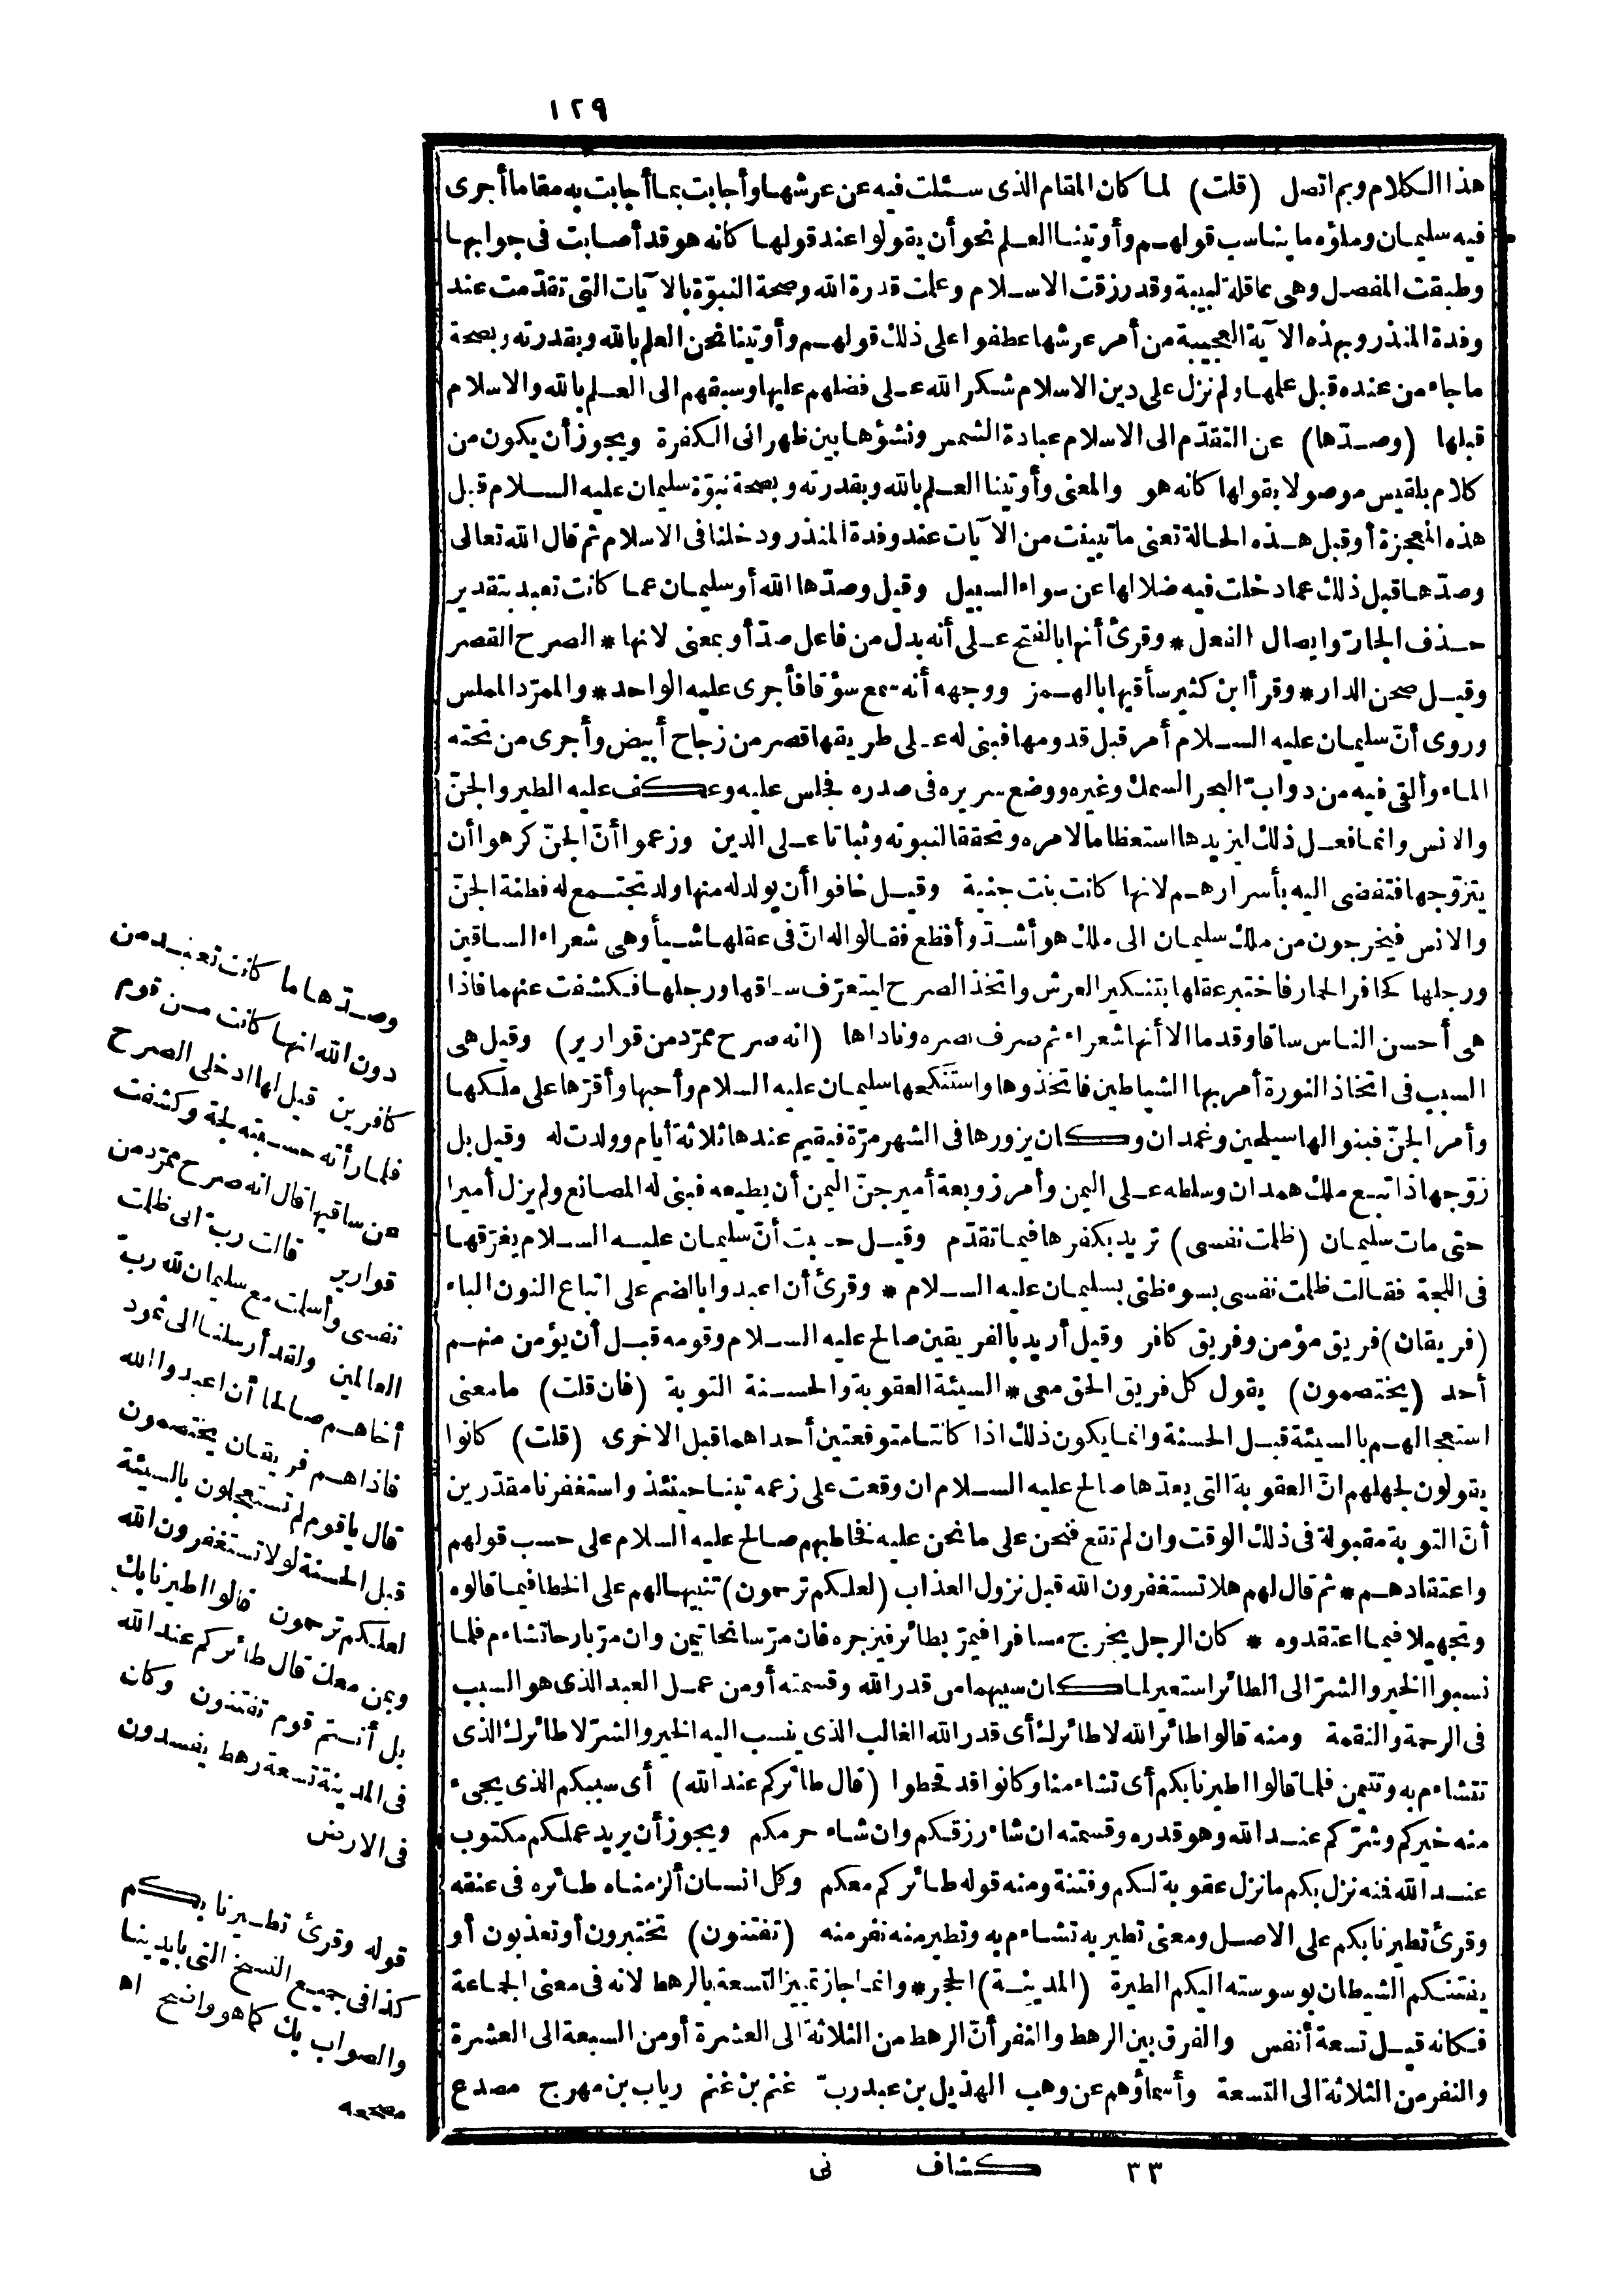 ١٢٩
هذا الكلام وبم اتصل (قلت) لما كان المقام الذى سئلت فيه عن عرشها وأجابت بما أجابت به مقاما أجرى
فيه سليمان وملؤه ما يناسب قولهم وأوتينا العلم نحو أن يقولوا عند قولها كانه هو قد أصابت فى جوابها
وطبقت المفصل وهى عاقلة لبيبة وقد رزقت الاسلام وعلمت قدرة الله وصحة النبوّة بالآيات التى تقدّمت عند
وفدة المنذر وبهذه الآية العجيبة من أمر عرشها عطفوا على ذلك قولهم وأوتينا نحن العلم بالله وبقدرته وبصحة
ما جاء من عنده قبل علمها ولم نزل على دين الاسلام شكر الله على فضلهم عليها وسبقهم الى العلم بالله والاسلام
قبلها (وصدّها) عن التقدّم الى الاسلام عبادة الشمس ونشؤها بين ظهرانى الكفرة ويجوز أن يكون من
كلام بلقيس موصولا بقولها كانه هو والمعنى وأوتينا العلم بالله وبقدرته وبصحة نبوّة سليمان عليه السلام قبل
هذه المعجزة أوقبل هذه الحالة تعنى ما تبينت من الآيات عند وفدة المنذر ودخلنا فى الاسلام ثم قال الله تعالى
وصدّها قبل ذلك عما دخلت فيه ضلالها عن سواء السبيل وقيل وصدّها الله أو سليمان عما كانت تعبد بتقدير
حذف الجارّ وايصال الفعل * وقرئ أنها بالفتح على أنه بدل من فاعل صدّ أو بمعنى لانها * الصرح القصر
وقيل صحن الدار * وقرأ ابن كثير سأقيها بالهمز ووجهه أنه سمع سؤقا فأجرى عليه الواحد * والممرّد المملس
وروى أنّ سليمان عليه السلام أمر قبل قدومها فبنى له على طريقها قصر من زجاج أبيض وأجرى من تحته
الماء وألقى فيه من دوابّ البحر السمك وغيره ووضع سريره فى صدره فجلس عليه وعكف عليه الطير والجنّ
والانس وانما فعل ذلك ليزيدها استعظاما لامره وتحققا لنبوته وثباتا على الدين وزعموا أنّ الجنّ كرهوا أن
يتزوّجها فتفضى اليه بأسرارهم لانها كانت بنت جنية وقيل خافوا أن يولد له منها ولد تجتمع له فطنة الجنّ
والانس فيخرجون من ملك سليمان الى ملك هو أشدّ وأفظع فقالوا له انّ فى عقلها شيأ وهى شعراء الساقين
ورجلها كحافر الحمار فاختبر عقلها بتنكير العرش واتخذ الصرح ليتعرّف ساقها ورجلها فكشفت عنهما فاذا
هى أحسن الناس ساقا وقدما الا أنها شعراء ثم صرف بصره وناداها (انه صرح ممرّد من قوارير) وقيل هى
السبب فى اتخاذ النورة أمر بها الشياطين فاتخذوها واستنكحها سليمان عليه السلام وأحبها وأقرّها على ملكها
وأمر الجنّ فبنوا لها سيلحين وغمدان وكان يزورها فى الشهر مرّة فيقيم عندها ثلاثة أيام وولدت له وقيل بل
زوّجها ذا تبع ملك همدان وسلطه على اليمن وأمر زوبعة أمير جنّ اليمن أن يطيعه فبنى له المصانع ولم يزل أميرا
حتى مات سليمان (ظلمت نفسى) تريد بكفرها فيما تقدّم وقيل حسبت أنّ سليمان عليه السلام يغرّقها
فى اللجة فقالت ظلمت نفسى بسوء ظنى بسليمان عليه السلام * وقرئ أن اعبدوا بالضم على اتباع النون الباء
(فريقان) فريق مؤمن وفريق كافر وقيل أريد بالفريقين صالح عليه السلام وقومه قبل أن يؤمن منهم
أحد (يختصمون) يقول كل فريق الحق معى * السيئة العقوبة والحسنة التوبة (فان قلت) ما معنى
استعجالهم بالسيئة قبل الحسنة وانما يكون ذلك اذا كانتا متوقعتين أحداهما قبل الاخرى (قلت) كانوا
يقولون لجهلهم انّ العقوبة التى يعدّها صالح عليه السلام ان وقعت على زعمه تبنا حينئذ واستغفرنا مقدّرين
أنّ التوبة مقبولة فى ذلك الوقت وان لم تقع فنحن على ما نحن عليه فخاطبهم صالح عليه السلام على حسب قولهم
واعتقادهم * ثم قال لهم هلا تستغفرون الله قبل نزول العذاب (لعلكم ترحمون) تنبيها لهم على الخطا فيما قالوه
وتجهيلا فيما اعتقدوه * كان الرجل يخرج مسافرا فيمرّ بطائر فيزجره فان مرّ سانحا تيمن وان مرّ بارحا تشاءم فلما
نسبوا الخير والشرّ الى الطائر استعير لما كان سببهما من قدر الله وقسمته أو من عمل العبد الذى هو السبب
فى الرحمة والنقمة ومنه قالوا طائر الله لا طائرك أى قدر الله الغالب الذى ينسب اليه الخير والشرّ لا طائرك الذى
تتشاءم به وتتيمن فلما قالوا اطيرنا بكم أى تشاءمنا وكانوا قد قحطوا (قال طائركم عند الله) أى سببكم الذى يجىء
منه خيركم وشرّكم عند الله وهو قدره وقسمته ان شاء رزقكم وان شاء حرمكم ويجوز أن يريد عملكم مكتوب
عند الله فمنه نزل بكم ما نزل عقوبة لكم وفتنة ومنه قوله طائركم معكم وكل انسان ألزمناه طائره فى عنقه
وقرئ تطيرنا بكم على الاصل ومعنى تطير به تشاءم به وتطير منه نفر منه (تفتنون) تختبرون أو تعذبون أو
يفتنكم الشيطان بوسوسته اليكم الطيرة (المدينة) الحجر * وانما جاز تمييز التسعة بالرهط لانه فى معنى الجماعة
فكانه قيل تسعة أنفس والفرق بين الرهط والنفر أنّ الرهط من الثلاثة الى العشرة أو من السبعة الى العشرة
والنفر من الثلاثة الى التسعة وأسماؤهم عن وهب الهذيل بن عبد ربّ غنم بن غنم رياب بن مهرج مصدع
وصدّها ما كانت تعبد من
دون الله انها كانت من قوم
كافرين قيل لها ادخلى الصرح
فلما رأته حسبته لجة وكشفت
عن ساقيها قال انه صرح ممرّد من
قوارير قالت ربّ انى ظلمت
نفسى وأسلمت مع سليمان لله ربّ
العالمين ولقد أرسلنا الى ثمود
أخاهم صالحا أن اعبدوا الله
فاذا هم فريقان يختصمون
قال يا قوم لم تستعجلون بالسيئة
قبل الحسنة لولا تستغفرون الله
لعلكم ترحمون قالوا اطيرنا بك
وبمن معك قال طائركم عند الله
بل أنتم قوم تفتنون وكان
فى المدينة تسعة رهط يفسدون
فى الارض
قوله وقرئ تطيرنا بكم
كذا فى جميع النسخ التى بايدينا
والصواب بك كما هو واضح اه
مصححه
٣٣ كشاف نى